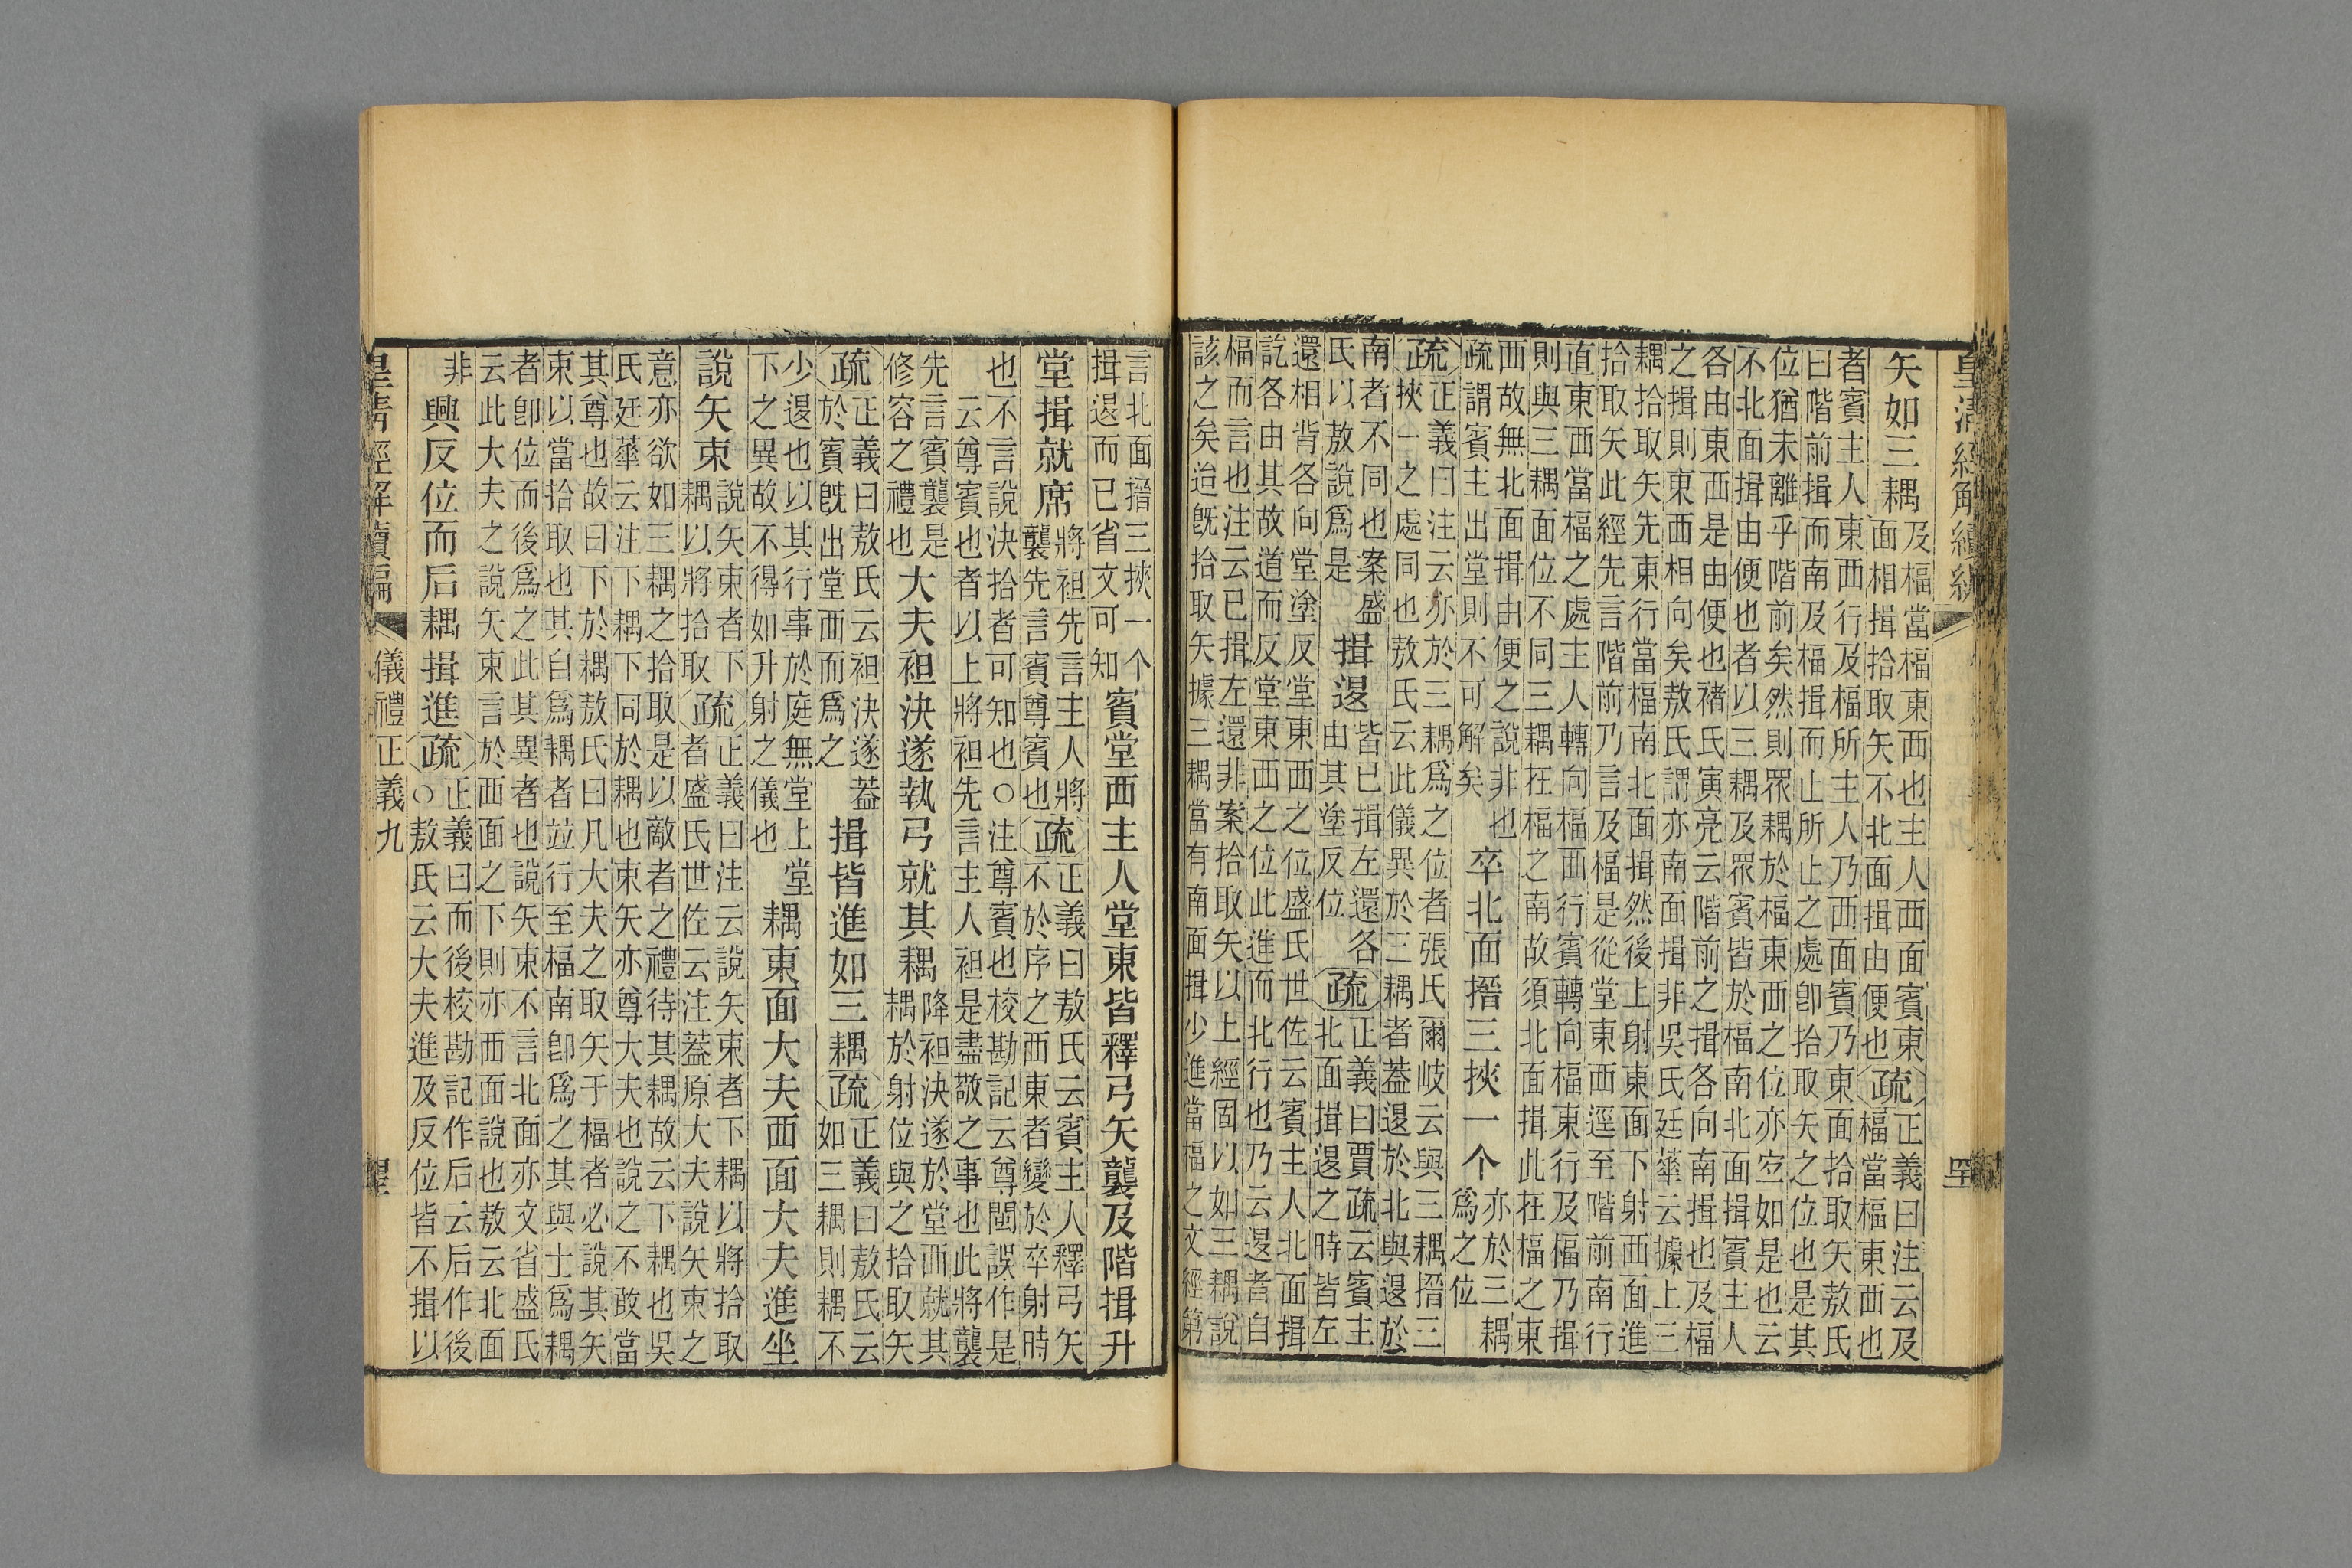 皇清經解續
矢如三耦
及楅當楅東西也主人西面賓東
面相揖拾取矢不北面揖由便也
疏
正義曰注云及
楅當楅東西也
者賓主人東西行及楅所主人乃西面賓乃東面拾取矢敖氏
曰階前揖而南及楅揖而止所止之處卽拾取矢之位也是其
位猶未離乎階前矣然則眾耦於楅東西之位亦空如是也云
不北面揖由便也者以三耦及眾賓皆於楅南北面揖賓主人
各由東西是由便也褚氏寅亮云階前之揖各向南揖也及楅
之揖則東西相向矣敖氏謂亦南面揖非吳氏廷華云據上三
耦拾取矢先東行當楅南北面揖然後上射東面下射西面進
拾取矢此經先言階前乃言及楅是從堂東西逕至階前南行
直東西當楅之處主人轉向楅西行賓轉向楅東行及楅乃揖
則與三耦面位不同三耦在楅之南故須北面揖此在楅之東
西故無北面揖由便之說非也
疏謂賓主出堂則不可解矣
卒北面搢三挾一个
亦於三耦
爲之位
疏
正義曰注云亦於三耦爲之位者張氏爾岐云與三耦搢三
挾一之處同也敖氏云此儀異於三耦者葢退於北與退於
南者不同也案盛
氏以敖說爲是
揖退
皆已揖左還各
由其塗反位
疏
正義曰賈疏云賓主
北面揖退之時皆左
還相背各向堂塗反堂東西之位盛氏世佐云賓主人北面揖
訖各由其故道而反堂東西之位此進而北行也乃云退者自
楅而言也注云已揖左還非案拾取矢以上經固以如三耦說
該之矣迨旣拾取矢據三耦當有南面揖少進當楅之文經第
言北面搢三挾一个
揖退而已省文可知
賓堂西主人堂東皆釋弓矢襲及階揖升
堂揖就席
將袒先言主人將
襲先言賓尊賓也
疏
正義曰敖氏云賓主人釋弓矢
不於序之西東者變於卒射時
也不言說決拾者可知也○注尊賓也校勘記云尊閩誤作是
云尊賓也者以上將袒先言主人袒是盡敬之事也此將襲
先言賓襲是
修容之禮也
大夫袒決遂執弓就其耦
降袒決遂於堂西就其
耦於射位與之拾取矢
疏
正義曰敖氏云袒決遂葢
於賓旣出堂西而爲之
揖皆進如三耦
疏
正義曰敖氏云
如三耦則耦不
少退也以其行事於庭無堂上堂
下之異故不得如升射之儀也
耦東面大夫西面大夫進坐
說矢束
說矢束者下
耦以將拾取
疏
正義曰注云說矢束者下耦以將拾取
者盛氏世佐云注葢原大夫說矢束之
意亦欲如三耦之拾取是以敵者之禮待其耦故云下耦也吳
氏廷華云注下耦下同於耦也束矢亦尊大夫也說之不敢當
其尊也故曰下於耦敖氏曰凡大夫之取矢于楅者必說其矢
束以當拾取也其自爲耦者竝行至楅南卽爲之其與士爲耦
者卽位而後爲之此其異者也說矢束不言北面亦文省盛氏
云此大夫之說矢束言於西面之下則亦西面說也敖云北面
非
興反位而后耦揖進
疏
正義曰而後校勘記作后云后作後
○敖氏云大夫進及反位皆不揖以
皇清經解續編
儀禮正義九